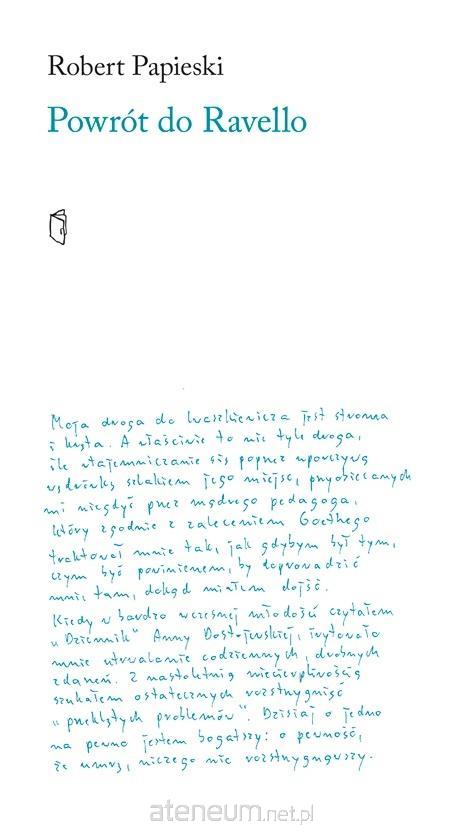 Robert Papieski
Powrót do Ravello
Moja droga do Iwaszkiewicza jest stroma
i kręta. A właściwie to nie tyle droga,
ile wtajemniczanie się poprzez uporczywą
wędrówkę szlakiem jego miejsc, przyobiecanych
mi niegdyś przez mądrego pedagoga,
który zgodnie z zaleceniem Goethego
traktował mnie tak, jak gdybym był tym,
czym być powinienem, by doprowadzić
mnie tam, dokąd miałem dojść.
Kiedy w bardzo wczesnej młodości czytałem
„Dziennik" Anny Dostojewskiej, irytowało
mnie utrwalanie codziennych, drobnych
zdarzeń. Z nastoletnią niecierpliwością
szukałem ostatecznych rozstrzygnięć
„przeklętych problemów". Dzisiaj o jedno
na pewno jestem bogatszy: o pewność,
że umrę, niczego nie rozstrzygnąwszy.
ateneum.net.pl